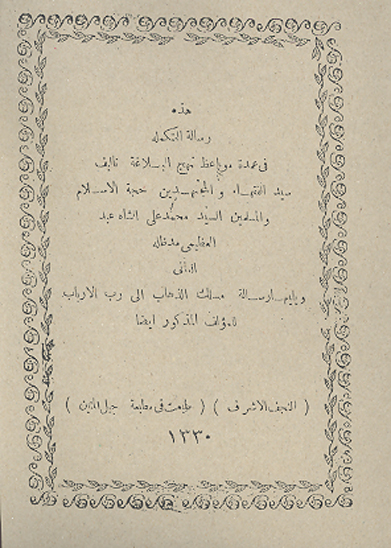 هذه
رسالة التكمله
فى عمدة مواعظ نهج البلاغة تاليف
سيد الفقهاء والمجتهدين حجة الاسلام
والمسلمين السيد محمد على الشاه عبد
العظيمى مد ظله
العالى
ويليها رسالة مسلك الذهاب الى رب الارباب
للمؤلف المذكور ايضا
( النجف الاشرف ) ( طبعت فى مطبعة حبل المتين )
١٣٣٠